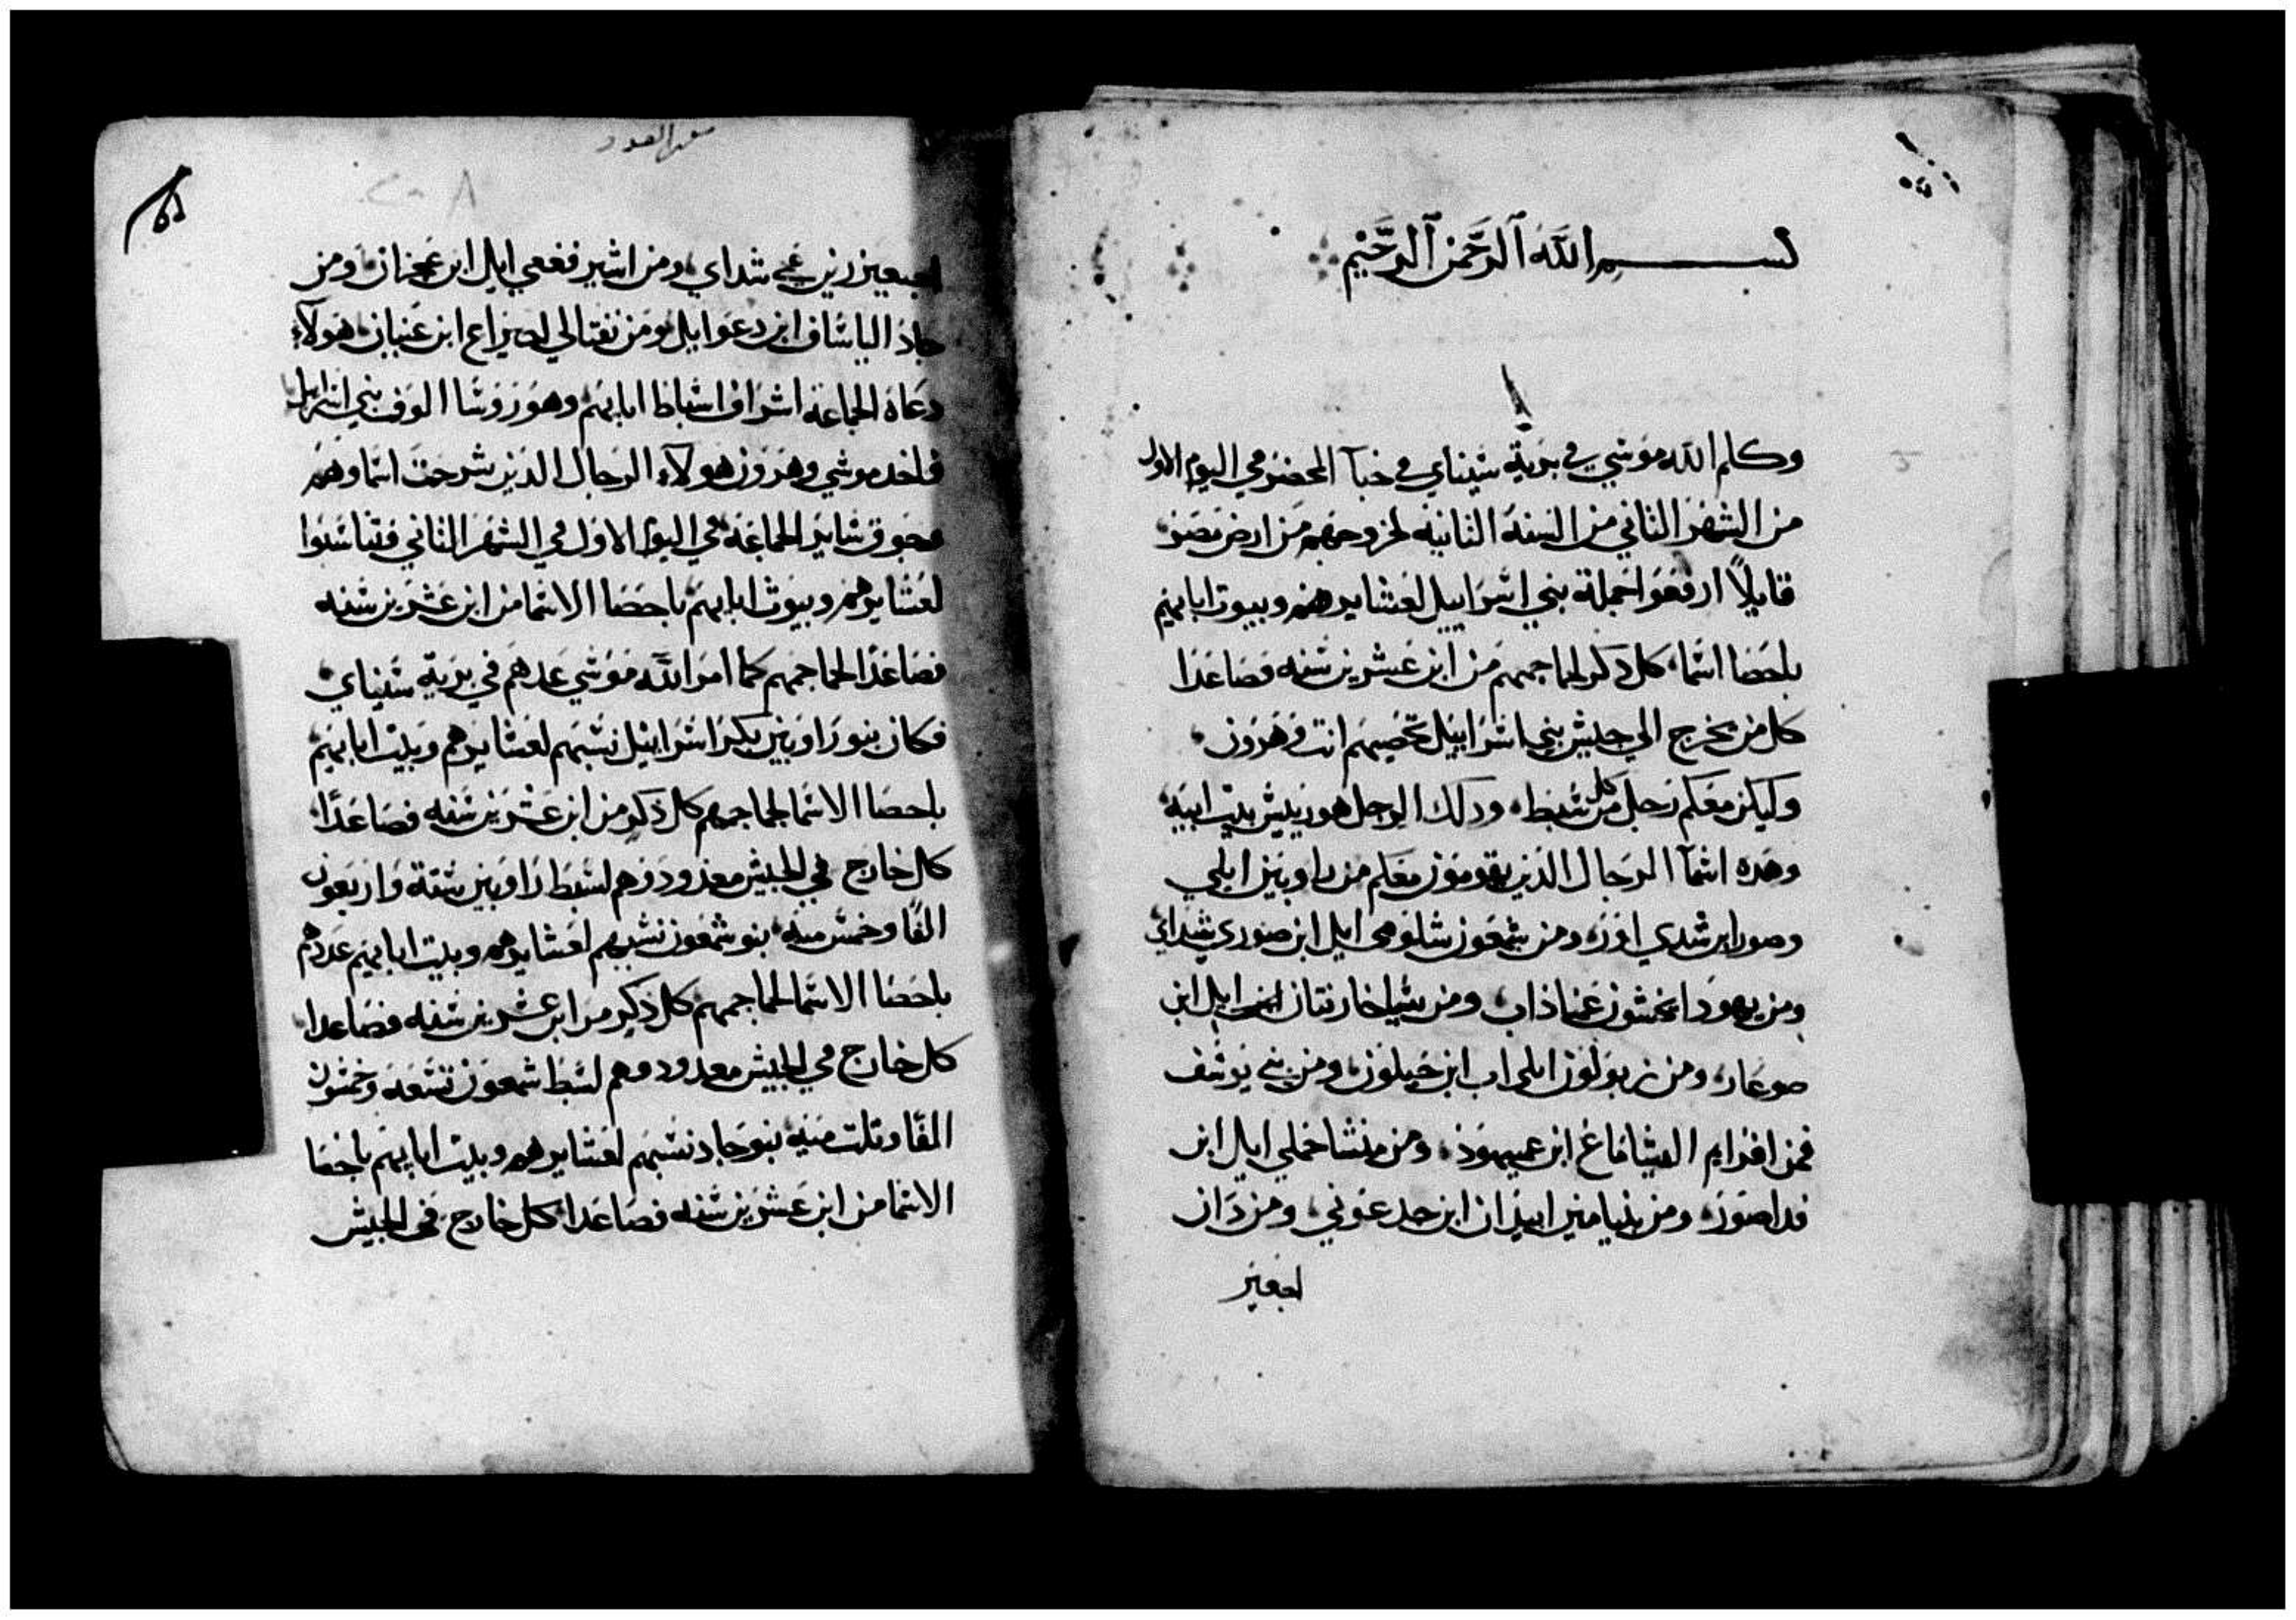 بسم الله الرحمن الرحيم
وكلم الله موسي في برية سيناي في خبآ المحضر في اليوم الاول
من الشهر الثاني من السنة الثانية لخروجهم من ارض مصر
قايلاً ارفعوا جملة بني اسراييل لعشايرهم وبيوت ابايهم
باحصا اسما كل دكر لجماجمهم من ابن عشرين سنه فصاعدا
كل من يخرج الي جيش بني اسراييل تحصيهم انت وهرون
وليكن معكم رجل من كل سبط ودلك الرجل هو ريس بيت ابيه
وهده اسمآ الرجال الذين يقومون معكم من راوبين ايلي
وصور ابن شدي اور ومن شمعون شلومي ايل ابن صوري شداي
ومن يهودا نحشون عميناذاب ومن يساخار نتان ايل ابن
صوعار ومن زبولون ايلي اب ابن حيلون ومن بني يوسف
فمن افرايم اليشاماع ابن عميهوذ ومن منشا جملي اييل ابن
فداصور ومن بنيامين ابيدان ابن جدعوني ومن دان
اجعيز
سفر العدد
اجيعيزر بن عمي شداي ومن اشير فععي اييل ابن عجران ومن
جاد الياساف ابن دعوايل ومن نفتالي احيراع ابن عينان هولآء
دعاة الجماعة اشراف اسباط ابايهم وهم روسا الوف بني اسراييل
فاخد موسي وهرون هولآء الرجال الذين شرحت اسماوهم
وجوق ساير الجماعة في اليوم الاول في الشهر الثاني فتناسبوا
لعشايرهم وبيوت ابايهم باحصا الاسما من ابن عشرين سنه
فصاعدا لجماجمهم كما امر الله موسي عدهم في برية سيناي
فكان بنو راوبين بكر اسراييل نسبهم لعشايرهم وبيت ابايهم
باحصا الاسما لجماجمهم كل ذكر من ابن عشرين سنه فصاعدًا
كل خارج في الجيش معدودوهم لسبط راوبين ستة واربعون
الفًا وخمس ميه بنو شمعون نسبهم لعشايرهم وبيت ابايهم عددهم
باحصا الاسما لجماجمهم كل ذكر من ابن عشرين سنه فصاعدا
كل خارج في الجيش معدودوهم لسبط شمعون تسعه وخمسون
الفًا وتلت ميه بنو جاد نسبهم لعشايرهم وبيت ابايهم باحصا
الاسما من ابن عشرين سنه فصاعدا كل خارج في الجيش